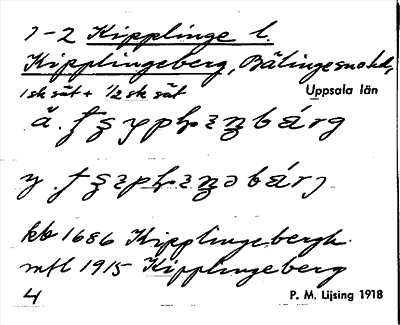 1-2 Kipplinge l.
Kipplingeberg, Bälingesnohd,
1 sk sät + 1/2 sk sät
Uppsala län
ä.
y.
kb 1686 Kipplingebergh
mtl 1915 Kipplingeberg
4 P. M. Lijsing 1918